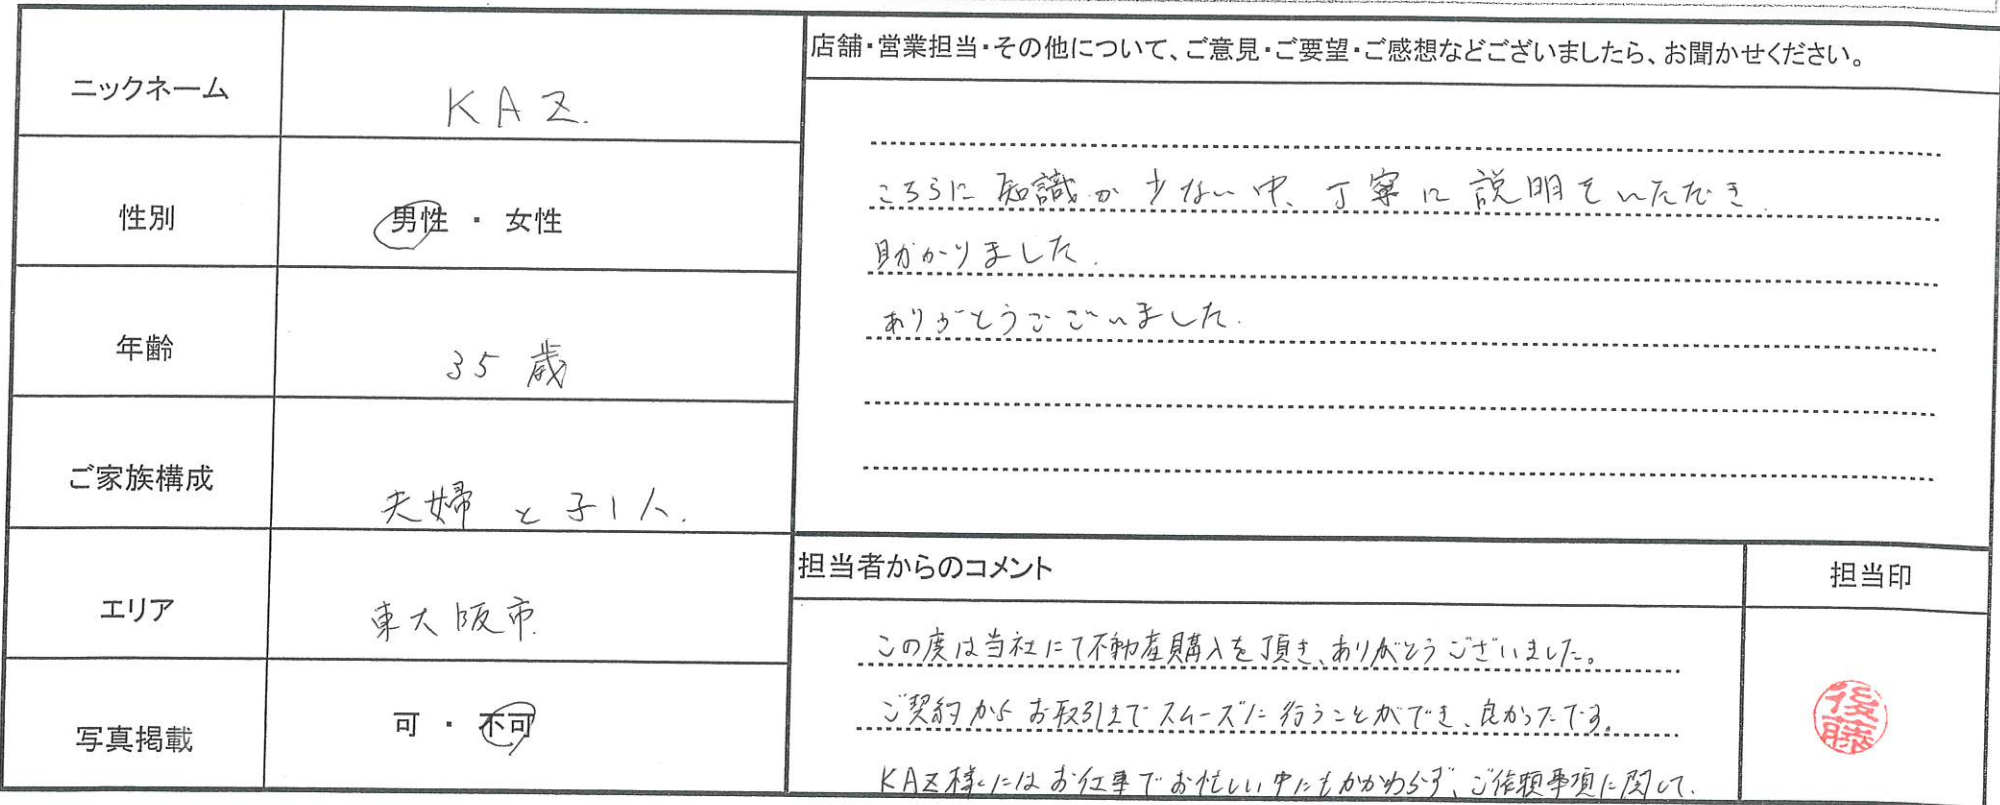 ニックネーム
KAZ.
性別
男性 ・ 女性
年齢
35歳
ご家族構成
夫婦と子1人.
エリア
東大阪市.
写真掲載
可 ・ 不可
店舗・営業担当・その他について、ご意見・ご要望・ご感想などございましたら、お聞かせください。
こちらに知識が少ない中、丁寧に説明をいただき.
助かりました.
ありがとうございました.
担当者からのコメント
この度は当社にて不動産購入を頂き、ありがとうございました。
ご契約からお取引までスムーズに行うことができ、良かったです。
KAZ様にはお仕事でお忙しい中にもかかわらず、ご依頼事項に関して、
担当印
後藤